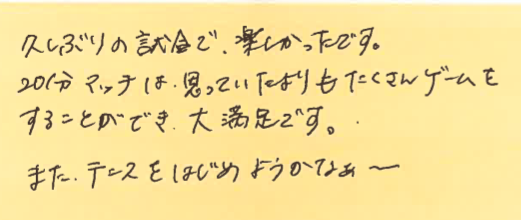 久しぶりの試合で、楽しかったです。
20分マッチは、思っていたよりもたくさんゲームを
することができ、大満足です。
また、テニスをはじめようかなぁ〜